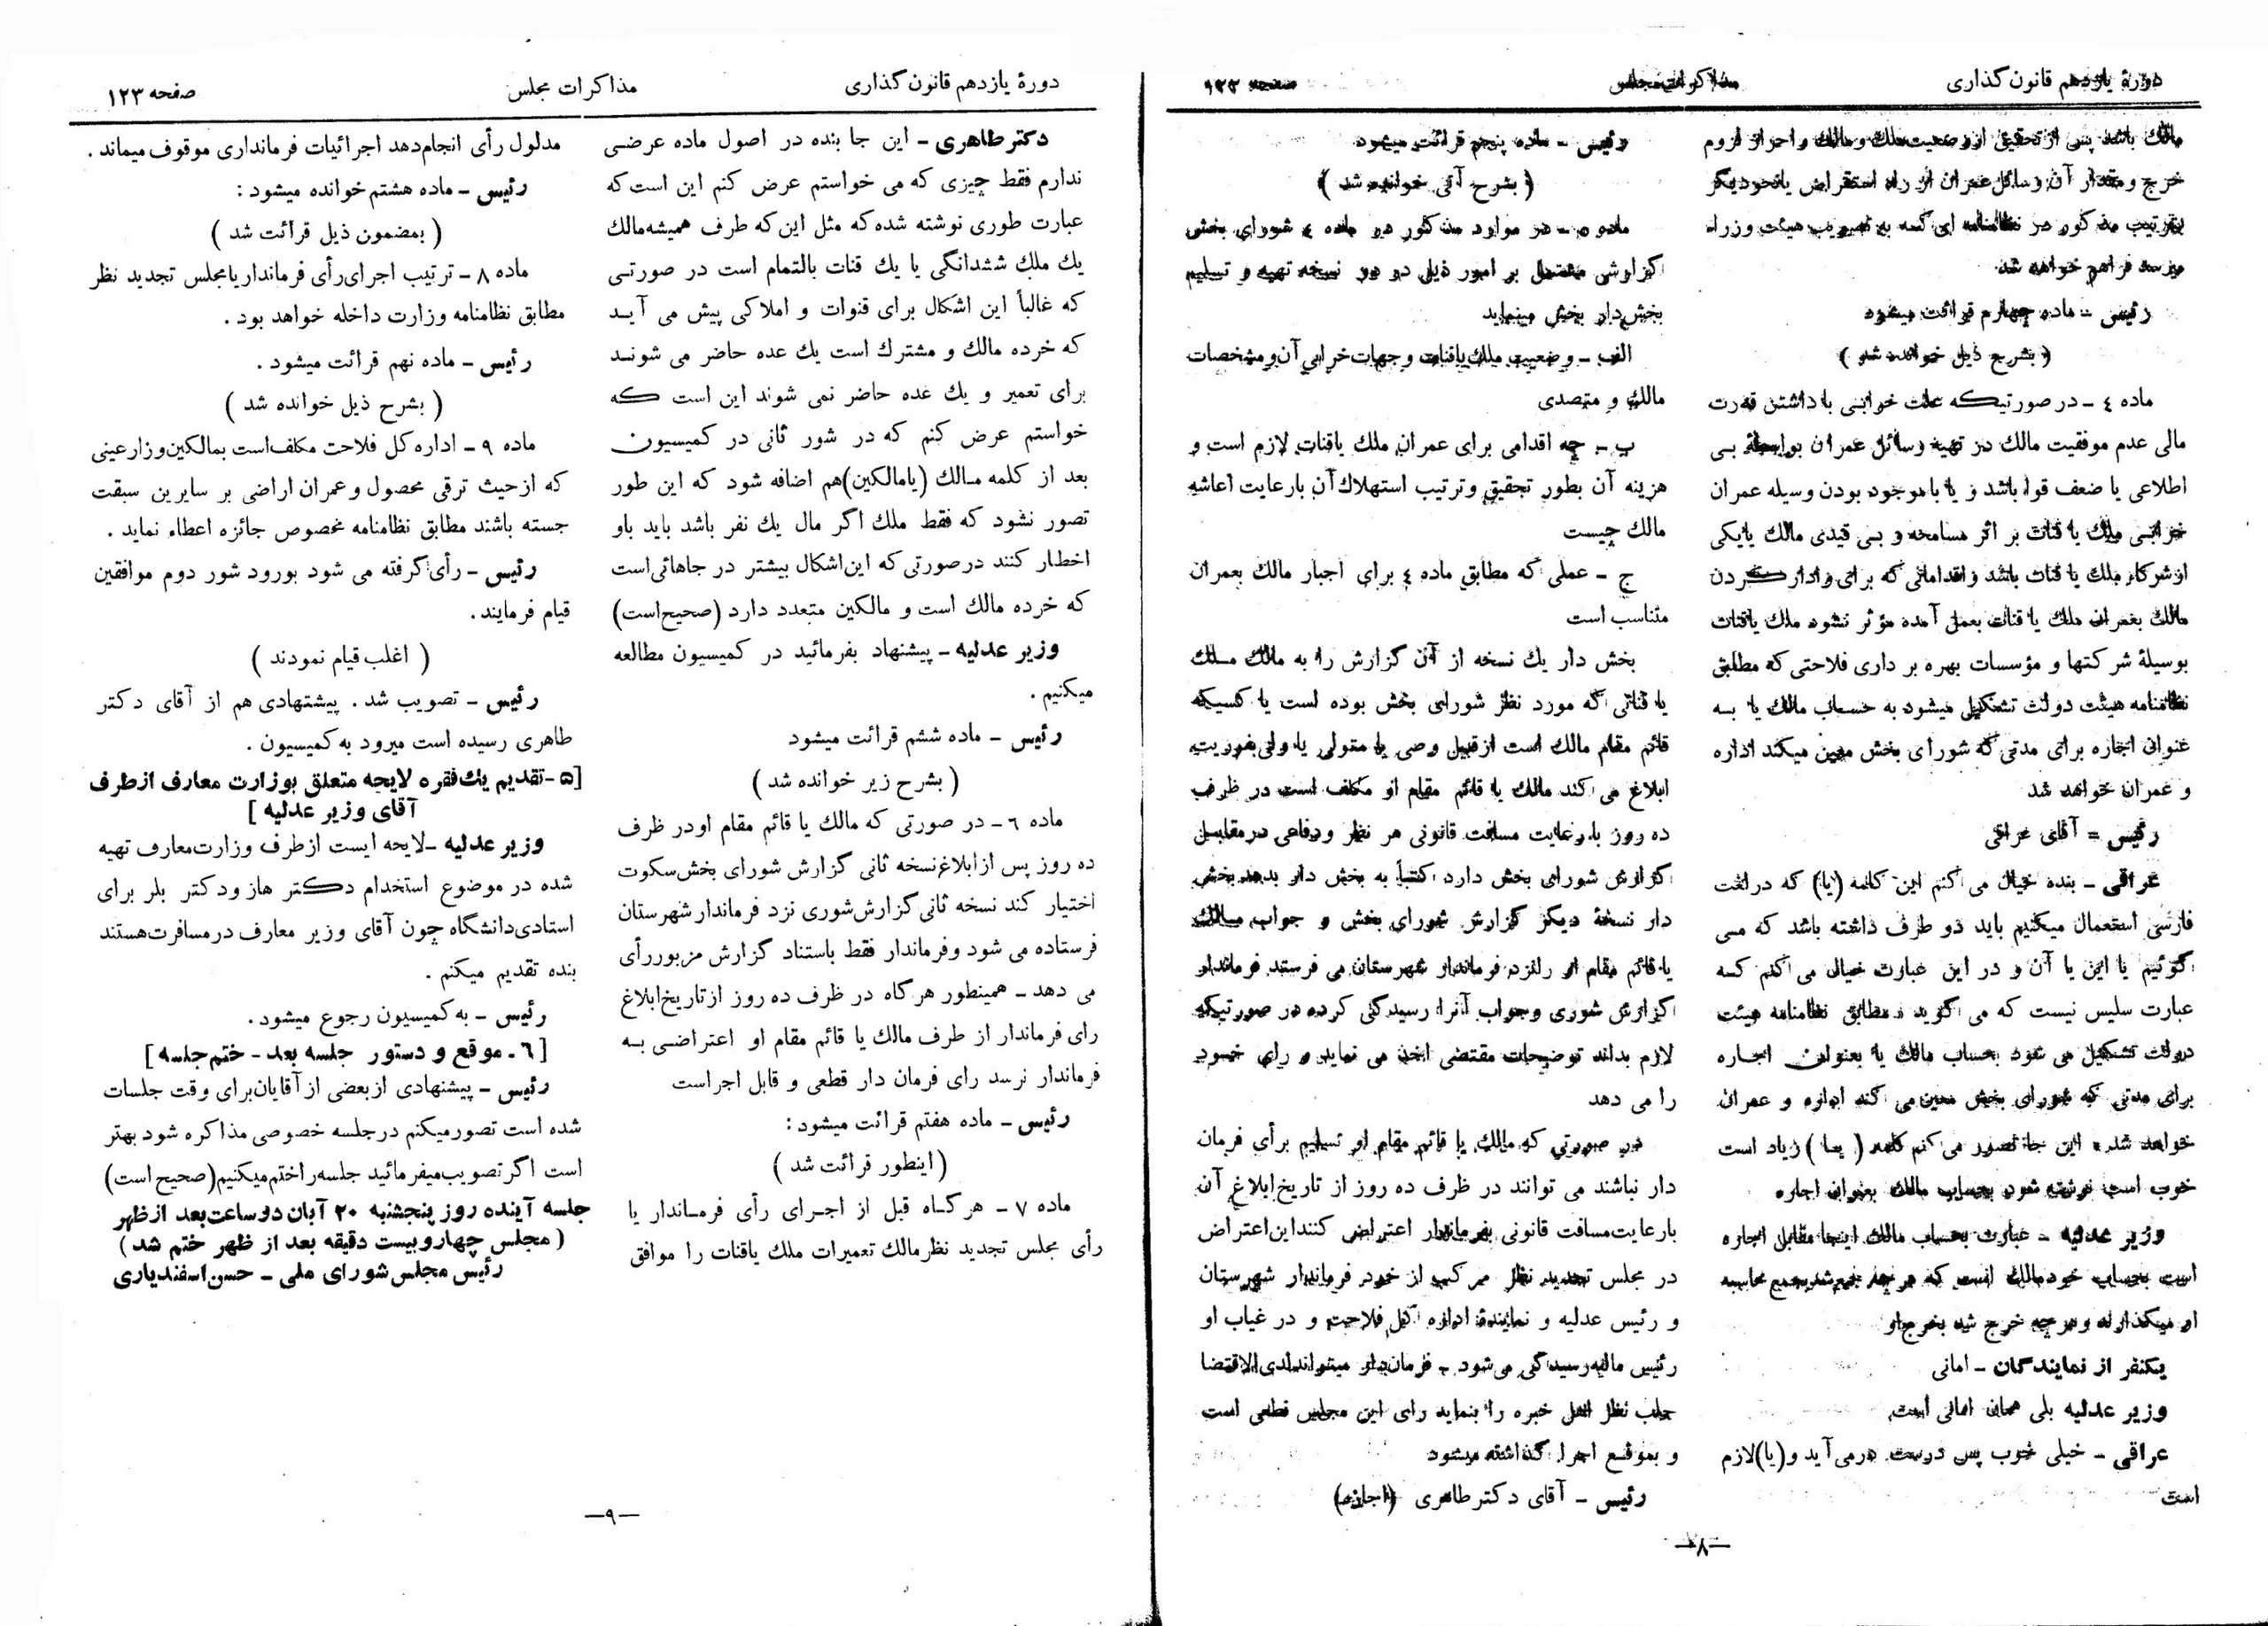 دورهٔ یازدهم قانون گذاری
مذاکرات مجلس
صفحه ۱۲۳
مالك باشد پس از تحقیق از وضعیت ملك و مالك و احراز لزوم
خرج و مقدار آن وسائل عمران از راه استقراض یا نحو دیگر
بترتیب مذکور در نظامنامه ای که به تصویب هیئت وزراء
میرسد فراهم خواهد شد
رئیس – ماده چهارم قرائت میشود
( بشرح ذیل خوانده شد )
ماده ٤ – در صورتیکه علت خرابی با داشتن قدرت
مالی عدم موفقیت مالك در تهیه وسائل عمران بواسطهٔ بی
اطلاعی یا ضعف قوا باشد و یا با موجود بودن وسیله عمران
خرابی ملك یا قنات بر اثر مسامحه و بی قیدی مالك یا یکی
از شرکاء ملك یا قنات باشد و اقداماتی که برای وادار کردن
مالك بعمران ملك یا قنات بعمل آمده مؤثر نشود ملك یا قنات
بوسیلهٔ شرکتها و مؤسسات بهره برداری فلاحتی که مطابق
نظامنامه هیئت دولت تشکیل میشود به حساب مالك یا به
عنوان اجاره برای مدتی که شورای بخش معین میکند اداره
و عمران خواهد شد
رئیس – آقای عراقی
عراقی – بنده خیال می کنم این کلمه (یا) که در لغت
فارسی استعمال میکنیم باید دو طرف داشته باشد که می
گوئیم یا این یا آن و در این عبارت خیال می کنم که
عبارت سلیس نیست که می گوید : مطابق نظامنامه هیئت
دولت تشکیل می شود بحساب مالك یا بعنوان اجاره
برای مدتی که شورای بخش معین می کند اداره و عمران
خواهد شد ، این جا تصور می کنم کلمه ( یا ) زیاد است
خوب است نوشته شود بحساب مالك بعنوان اجاره
وزیر عدلیه – عبارت بحساب مالك اینجا مقابل اجاره
است بحساب خود مالك است که هر چه جمع شد بجمع محاسبه
او میگذارند و هر چه خرج شد بخرج او
یکنفر از نمایندگان – امانی
وزیر عدلیه بلی همان امانی است
عراقی – خیلی خوب پس درست در می آید و (یا) لازم
است
رئیس – ماده پنجم قرائت میشود
( بشرح آتی خوانده شد )
ماده ۵ – در موارد مذکور در ماده ٤ شورای بخش
گزارشی مشتمل بر امور ذیل در دو نسخه تهیه و تسلیم
بخش دار بخش مینماید
الف – وضعیت ملك یا قنات و جهات خرابی آن و مشخصات
مالك و متصدی
ب – چه اقدامی برای عمران ملك یا قنات لازم است و
هزینه آن بطور تحقیق و ترتیب استهلاك آن با رعایت اعاشه
مالك چیست
ج – عملی که مطابق ماده ٤ برای اجبار مالك بعمران
متناسب است
بخش دار یك نسخه از آن گزارش را به مالك ملك
یا قناتی که مورد نظر شورای بخش بوده است یا کسیکه
قائم مقام مالك است از قبیل وصی یا متولی یا ولی بفوریت
ابلاغ می کند مالك یا قائم مقام او مکلف است در ظرف
ده روز با رعایت مسافت قانونی هر نظر و دفاعی در مقابل
گزارش شورای بخش دارد کتباً به بخش دار بدهد بخش
دار نسخهٔ دیگر گزارش شورای بخش و جواب مالك
یا قائم مقام او را نزد فرماندار شهرستان می فرستد فرماندار
گزارش شوری و جواب آنرا رسیدگی کرده در صورتیکه
لازم بداند توضیحات مقتضی اخذ می نماید و رای خود
را می دهد
در صورتی که مالك یا قائم مقام او تسلیم برأی فرمان
دار نباشند می توانند در ظرف ده روز از تاریخ ابلاغ آن
با رعایت مسافت قانونی بفرماندار اعتراض کنند این اعتراض
در مجلس تجدید نظر مرکب از خود فرماندار شهرستان
و رئیس عدلیه و نمایندهٔ اداره کل فلاحت و در غیاب او
رئیس مالیه رسیدگی می شود – فرمان دار میتواند لدی الاقتضا
جلب نظر اهل خبره را بنماید رای این مجلس قطعی است
و بموقع اجرا گذاشته میشود
رئیس – آقای دکتر طاهری (اجازه)
—٨—
دورهٔ یازدهم قانون گذاری
مذاکرات مجلس
صفحه ۱۲۳
دکتر طاهری – این جا بنده در اصول ماده عرضی
ندارم فقط چیزی که می خواستم عرض کنم این است که
عبارت طوری نوشته شده که مثل این که طرف همیشه مالك
یك ملك ششدانگی یا یك قنات بالتمام است در صورتی
که غالباً این اشکال برای قنوات و املاکی پیش می آید
که خرده مالك و مشترك است یك عده حاضر می شوند
برای تعمیر و یك عده حاضر نمی شوند این است که
خواستم عرض کنم که در شور ثانی در کمیسیون
بعد از کلمه مالك (یا مالکین) هم اضافه شود که این طور
تصور نشود که فقط ملك اگر مال یك نفر باشد باید باو
اخطار کنند در صورتی که این اشکال بیشتر در جاهائی است
که خرده مالك است و مالکین متعدد دارد (صحیح است)
وزیر عدلیه – پیشنهاد بفرمائید در کمیسیون مطالعه
میکنیم .
رئیس – ماده ششم قرائت میشود
( بشرح زیر خوانده شد )
ماده ٦ – در صورتی که مالك یا قائم مقام او در ظرف
ده روز پس از ابلاغ نسخه ثانی گزارش شورای بخش سکوت
اختیار کند نسخه ثانی گزارش شوری نزد فرماندار شهرستان
فرستاده می شود و فرماندار فقط باستناد گزارش مزبور رأی
می دهد – همینطور هر گاه در ظرف ده روز از تاریخ ابلاغ
رای فرماندار از طرف مالك یا قائم مقام او اعتراضی به
فرماندار نرسد رای فرمان دار قطعی و قابل اجراست
رئیس – ماده هفتم قرائت میشود :
( اینطور قرائت شد )
ماده ۷ – هر گاه قبل از اجرای رأی فرماندار یا
رأی مجلس تجدید نظر مالك تعمیرات ملك یا قنات را موافق
مدلول رأی انجام دهد اجرائیات فرمانداری موقوف میماند .
رئیس – ماده هشتم خوانده میشود :
( بمضمون ذیل قرائت شد )
ماده ۸ – ترتیب اجرای رأی فرماندار یا مجلس تجدید نظر
مطابق نظامنامه وزارت داخله خواهد بود .
رئیس – ماده نهم قرائت میشود .
( بشرح ذیل خوانده شد )
ماده ۹ – اداره کل فلاحت مکلف است بمالکین و زارعینی
که از حیث ترقی محصول و عمران اراضی بر سایرین سبقت
جسته باشند مطابق نظامنامه مخصوص جائزه اعطاء نماید .
رئیس – رأی گرفته می شود بورود شور دوم موافقین
قیام فرمایند .
( اغلب قیام نمودند )
رئیس – تصویب شد . پیشنهادی هم از آقای دکتر
طاهری رسیده است میرود به کمیسیون .
[۵- تقدیم یك فقره لایحه متعلق بوزارت معارف از طرف
آقای وزیر عدلیه ]
وزیر عدلیه – لایحه ایست از طرف وزارت معارف تهیه
شده در موضوع استخدام دکتر هاز و دکتر بلر برای
استادی دانشگاه چون آقای وزیر معارف در مسافرت هستند
بنده تقدیم میکنم .
رئیس – به کمیسیون رجوع میشود .
[ ٦ - موقع و دستور جلسه بعد - ختم جلسه ]
رئیس – پیشنهادی از بعضی از آقایان برای وقت جلسات
شده است تصور میکنم در جلسه خصوصی مذاکره شود بهتر
است اگر تصویب میفرمائید جلسه را ختم میکنیم (صحیح است)
جلسه آینده روز پنجشنبه ۲۰ آبان دو ساعت بعد از ظهر
( مجلس چهار و بیست دقیقه بعد از ظهر ختم شد )
رئیس مجلس شورای ملی – حسن اسفندیاری
—۹—